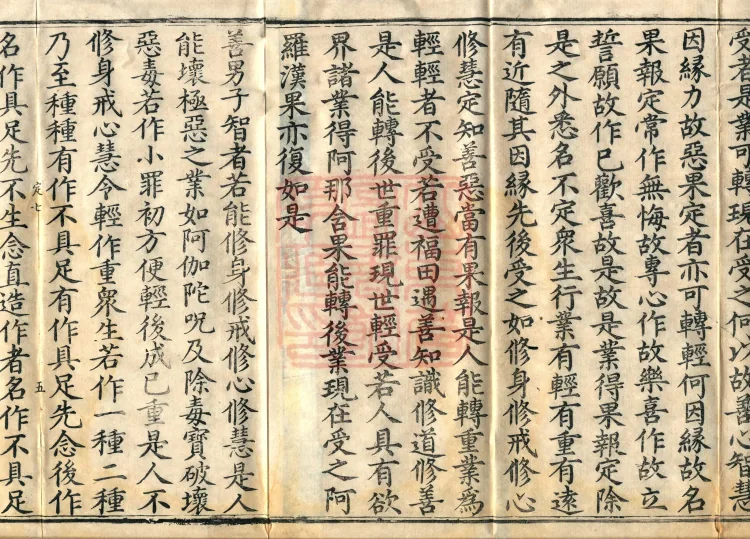 受者是業可轉現在受之何以故善心智慧
因緣力故惡果定者亦可轉輕何因緣故名
果報定常作無悔故專心作故樂喜作故立
誓願故作已歡喜故是故是業得果報定除
是之外悉名不定衆生行業有輕有重有遠
有近隨其因緣先後受之如修身修戒修心
修慧定知善惡當有果報是人能轉重業為
輕輕者不受若遭福田遇善知識修道修善
是人能轉後世重罪現世輕受若人具有欲
界諸業得阿那含果能轉後業現在受之阿
羅漢果亦復如是
善男子智者若能修身修戒修心修慧是人
能壞極惡之業如阿伽陀呪及除毒寶破壞
惡毒若作小罪初方便輕後成已重是人不
修身戒心慧令輕作重衆生若作一種二種
乃至種種有作不具足有作具足先念後作
定七 五
名作具足先不生念直造作者名作不具足